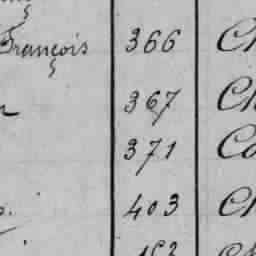 François 366 Ch
367 Ch
371 Co
403 Ch